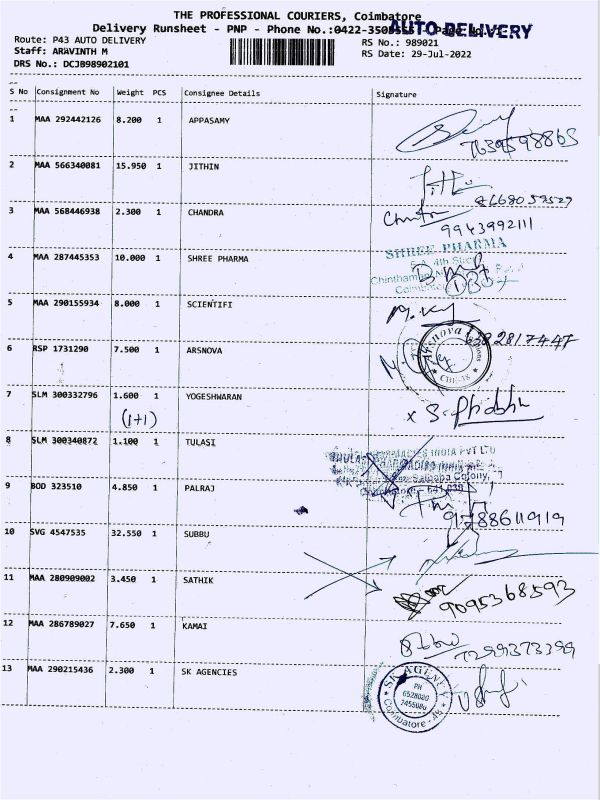 THE PROFESSIONAL COURIERS, Coimbatore
Delivery Runsheet - PNP - Phone No.:0422-
AUTO DELIVERY
Route: P43 AUTO DELIVERY
RS No.: 989021
Staff: ARAVINTH M
RS Date: 29-Jul-2022
DRS No.: DCJB98902101
S No Consignment No Weight PCS Consignee Details Signature
1 MAA 292442126 8.200 1 APPASAMY
2 MAA 566340081 15.950 1 JITHIN
3 MAA 568446938 2.300 1 CHANDRA
9943992111
4 MAA 287445353 10.000 1 SHREE PHARMA SHREE PHARMA
5 MAA 290155934 8.000 1 SCIENTIFI
6 RSP 1731290 7.500 1 ARSNOVA
7 SLM 300332796 1.600 1 YOGESHWARAN
(1+1)
8 SLM 300340872 1.100 1 TULASI
9 BOD 323510 4.850 1 PALRAJ
10 SVG 4547535 32.550 1 SUBBU
11 MAA 280909002 3.450 1 SATHIK
9095368593
12 MAA 286789027 7.650 1 KAMAI
7299373399
13 MAA 290215436 2.300 1 SK AGENCIES
SK AGENCY
PH
Coimbatore